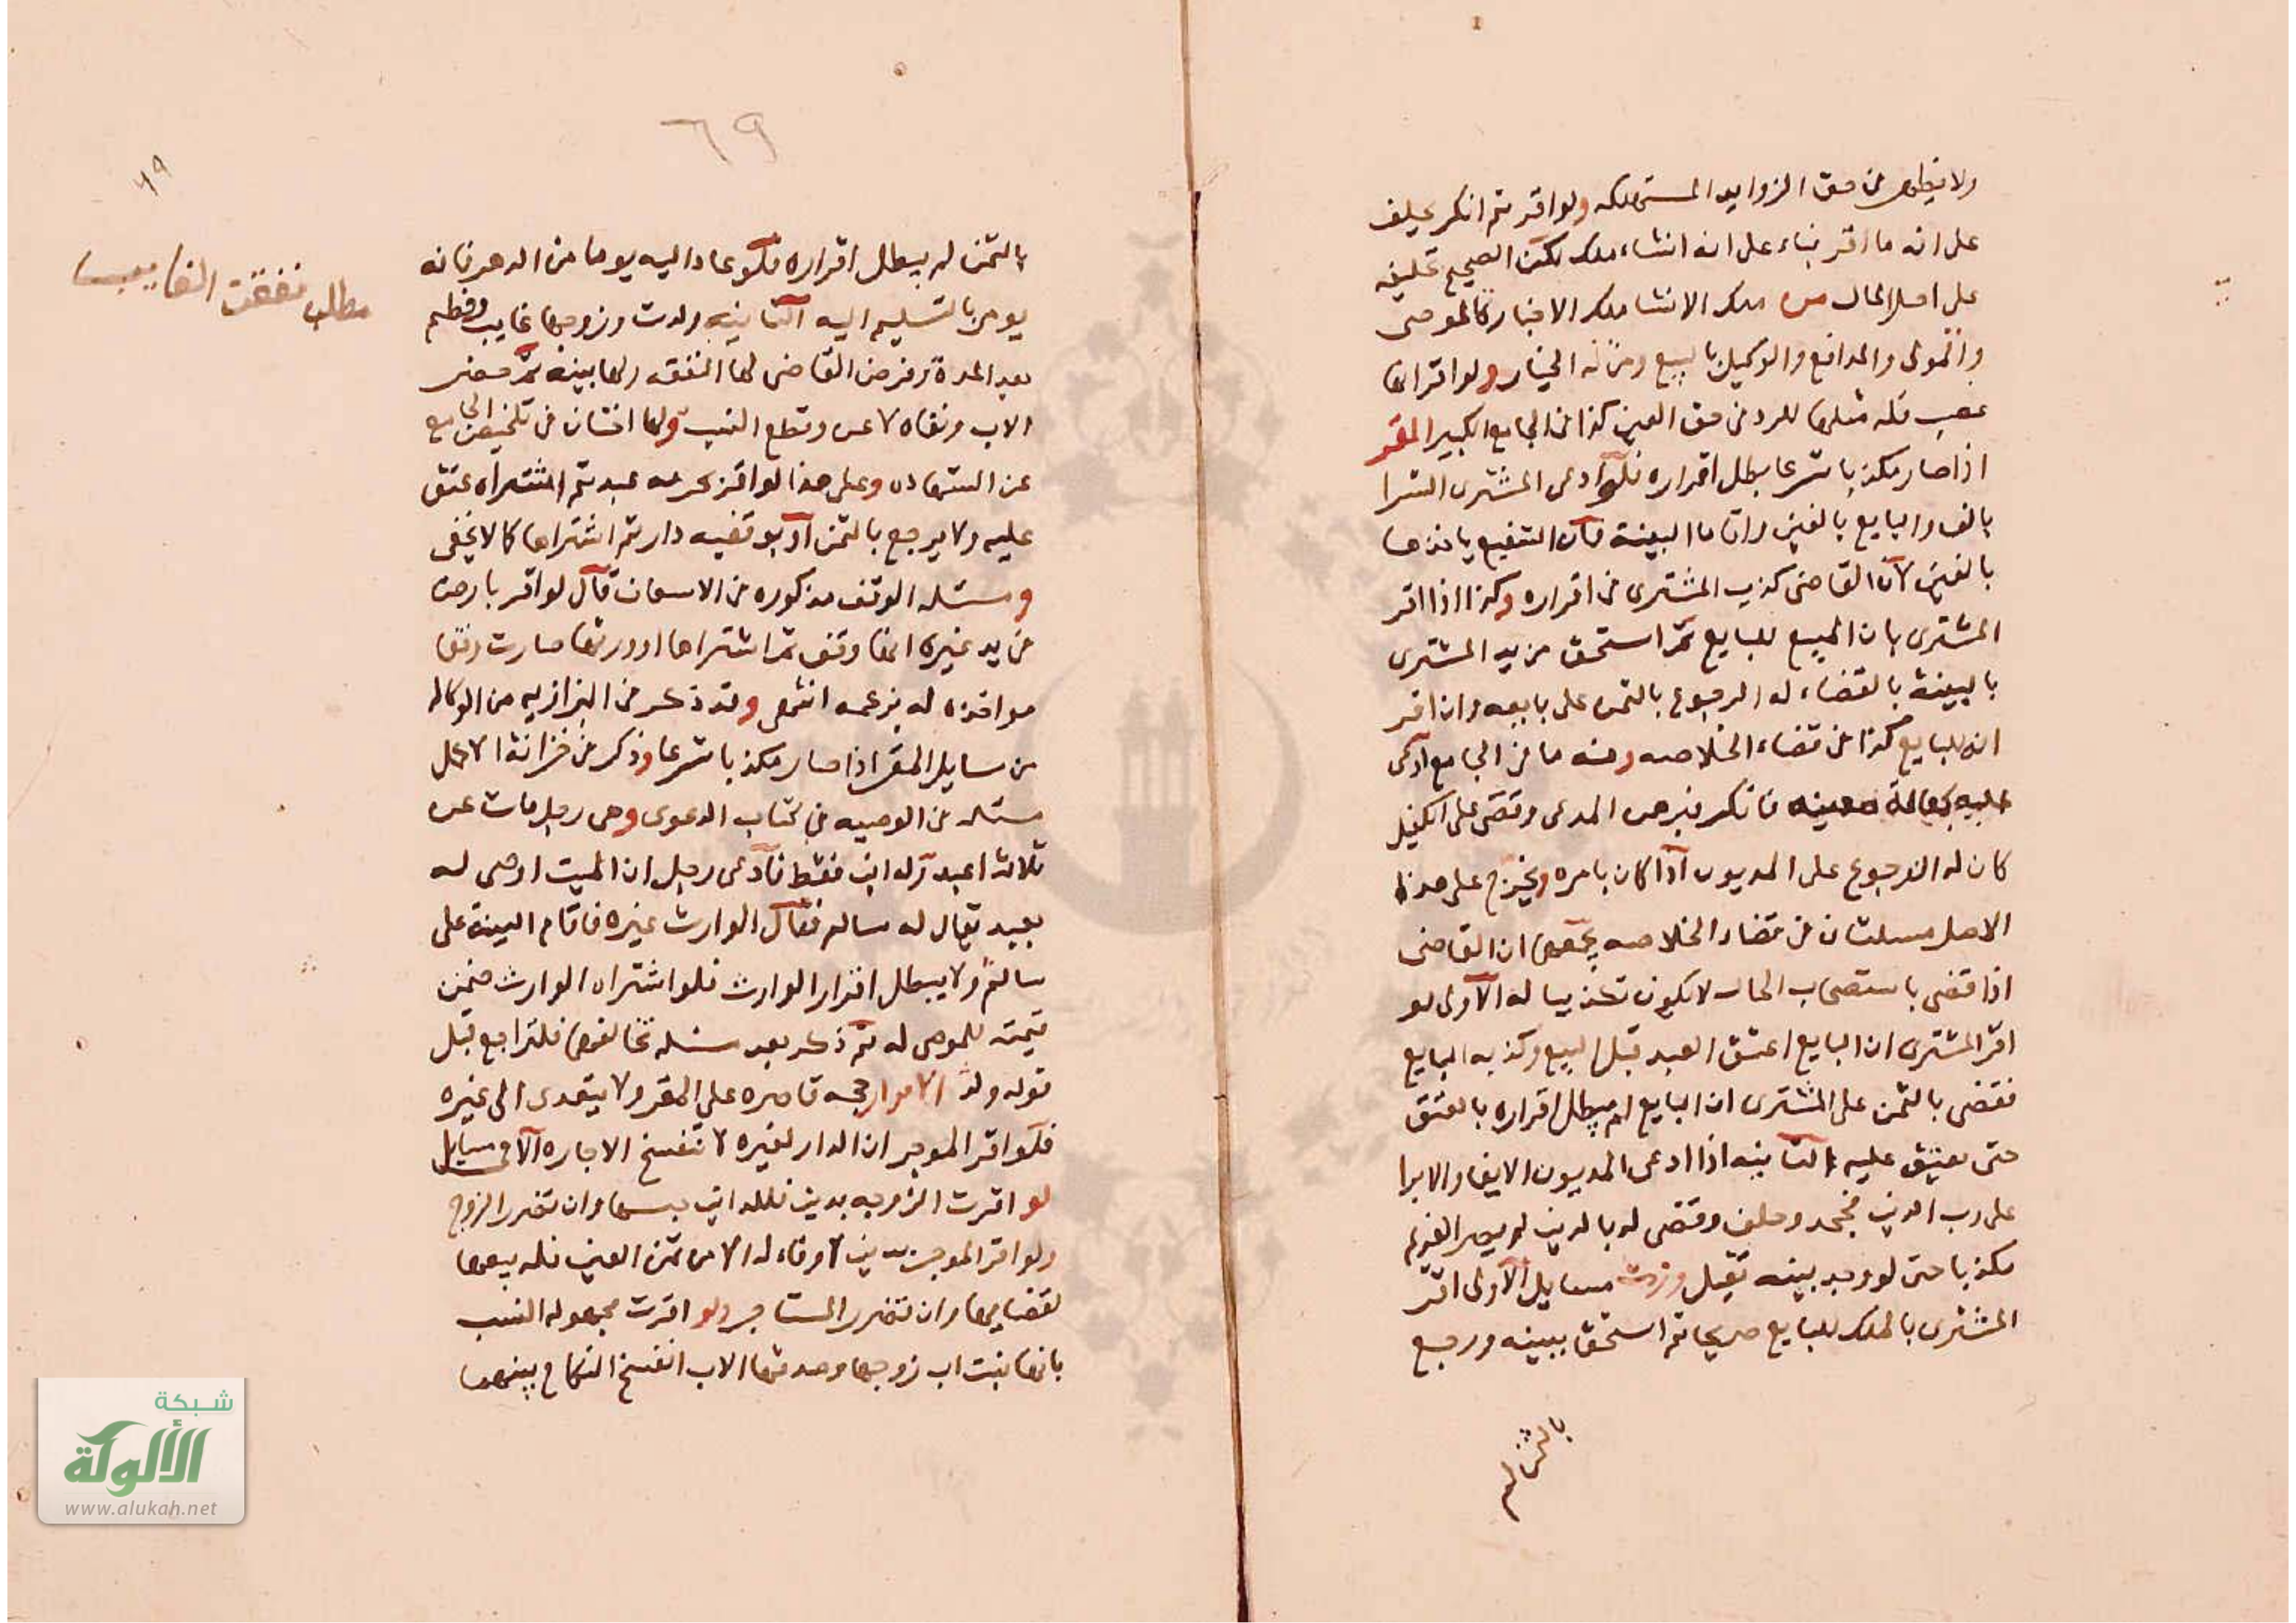 ولا يظهر في حق الزوايد المستهلكه ولو اقر ثم انكر يحلف
على انه ما اقر بناء على انه انشاء ملك لكن الصحيح تحليفه
على اصل المال من ملك الانشا ملك الاخبار كالموصى
والمولى والمراجع والوكيل بالبيع ومن له الخيار ولو اقر انها
غصب فله مثلها للرد في حق العين كذا في الجامع الكبير المقر
اذا صار مكذبا شرعا بطل اقراره فلو ادعى المشترى الشرا
بالف والبايع بالفين واقاما البينة فان الشفيع ياخذها
بالفين لان القاضى كذب المشترى في اقراره وكذا اذا اقر
المشترى بان المبيع للبايع ثم استحق من يد المشترى
بالبينة بالقضاء له الرجوع بالثمن على بايعه وان اقر
انه للبايع كذا في قضاء الخلاصه ومنه ما في الجامع ادعى
عليه كفالة معينه فانكر فبرهن المدعى وقضى على الكفيل
كان له الرجوع على المديون اذا كان بامره ويخرج على هذا
الاصل مسئلتان في قضاء الخلاصه يجمعهما ان القاضى
اذا قضى باستصحاب الحال لا يكون تكذيبا له الاولى لو
اقر المشترى ان البايع اعتق العبد قبل البيع وكذبه البايع
فقضى بالثمن على المشترى ان البايع لم يبطل اقراره بالعتق
حتى يعتق عليه الثانيه اذا ادعى المديون الايفا والابرا
على رب الدين فجحد وحلف وقضى له بالدين لم يصر الغريم
مكذبا حتى لو وجد بينه تقبل وزدت مسايل الاولى اقر
المشترى بالملك للبايع صريحا ثم استحق ببينه ورجع
بالثمن لم
٦٩
٦٩
مطلب نفقت الغايب
بالثمن لم يبطل اقراره فلو عاد اليه يوما من الدهر فانه
يومر بالتسليم اليه الثانيه ولدت وزوجها غايب وفطم
بعد المدة وفرض القاضى لها النفقه ولها بينه ثم حضر
الاب ونفاه لاعن وقطع النسب ولها اختان في تلخيص الجامع
عن الشهاده وعلى هذا لو اقر بحرية عبد ثم اشتراه عتق
عليه ولا يرجع بالثمن او بوقفيه دار ثم اشتراها كما لا يخفى
ومسئله الوقف مذكوره في الاسعاف قال لو اقر بارض
في يد غيره انها وقف ثم اشتراها او ورثها صارت وقفا
مواخذه له بزعمه انتهى وقد ذكر في البزازيه من الوكاله
من مسايل المقر اذا صار مكذبا شرعا وذكر في خزانة الاكمل
مسئله في الوصيه في كتاب الدعوى وهى رجل مات عن
ثلاثة اعبد وله ابن فقط فادعى رجل ان الميت اوصى له
بعبد يقال له سالم فقال الوارث غيره فاقام البينة على
سالم ولا يبطل اقرار الوارث فلو اشتراه الوارث ضمن
قيمته للموصى له ثم ذكر بعد مسئله تخالفها فلتراجع قبل
قوله ولد الاقرار حجه قاصره على المقر ولا يتعدى الى غيره
فلو اقر الموجر ان الدار لغيره لا تنفسخ الاجاره الا في مسايل
لو اقرت الزوجه بدين فللداين حبسها وان تضرر الزوج
ولو اقر الموجر بدين لا وفاء له الا من ثمن العين فله بيعها
لقضايها وان تضرر المستاجر ولو اقرت مجهوله النسب
بانها بنت اب زوجها وصدقها الاب انفسخ النكاح بينهما
شبكة
الألوكة
www.alukah.net